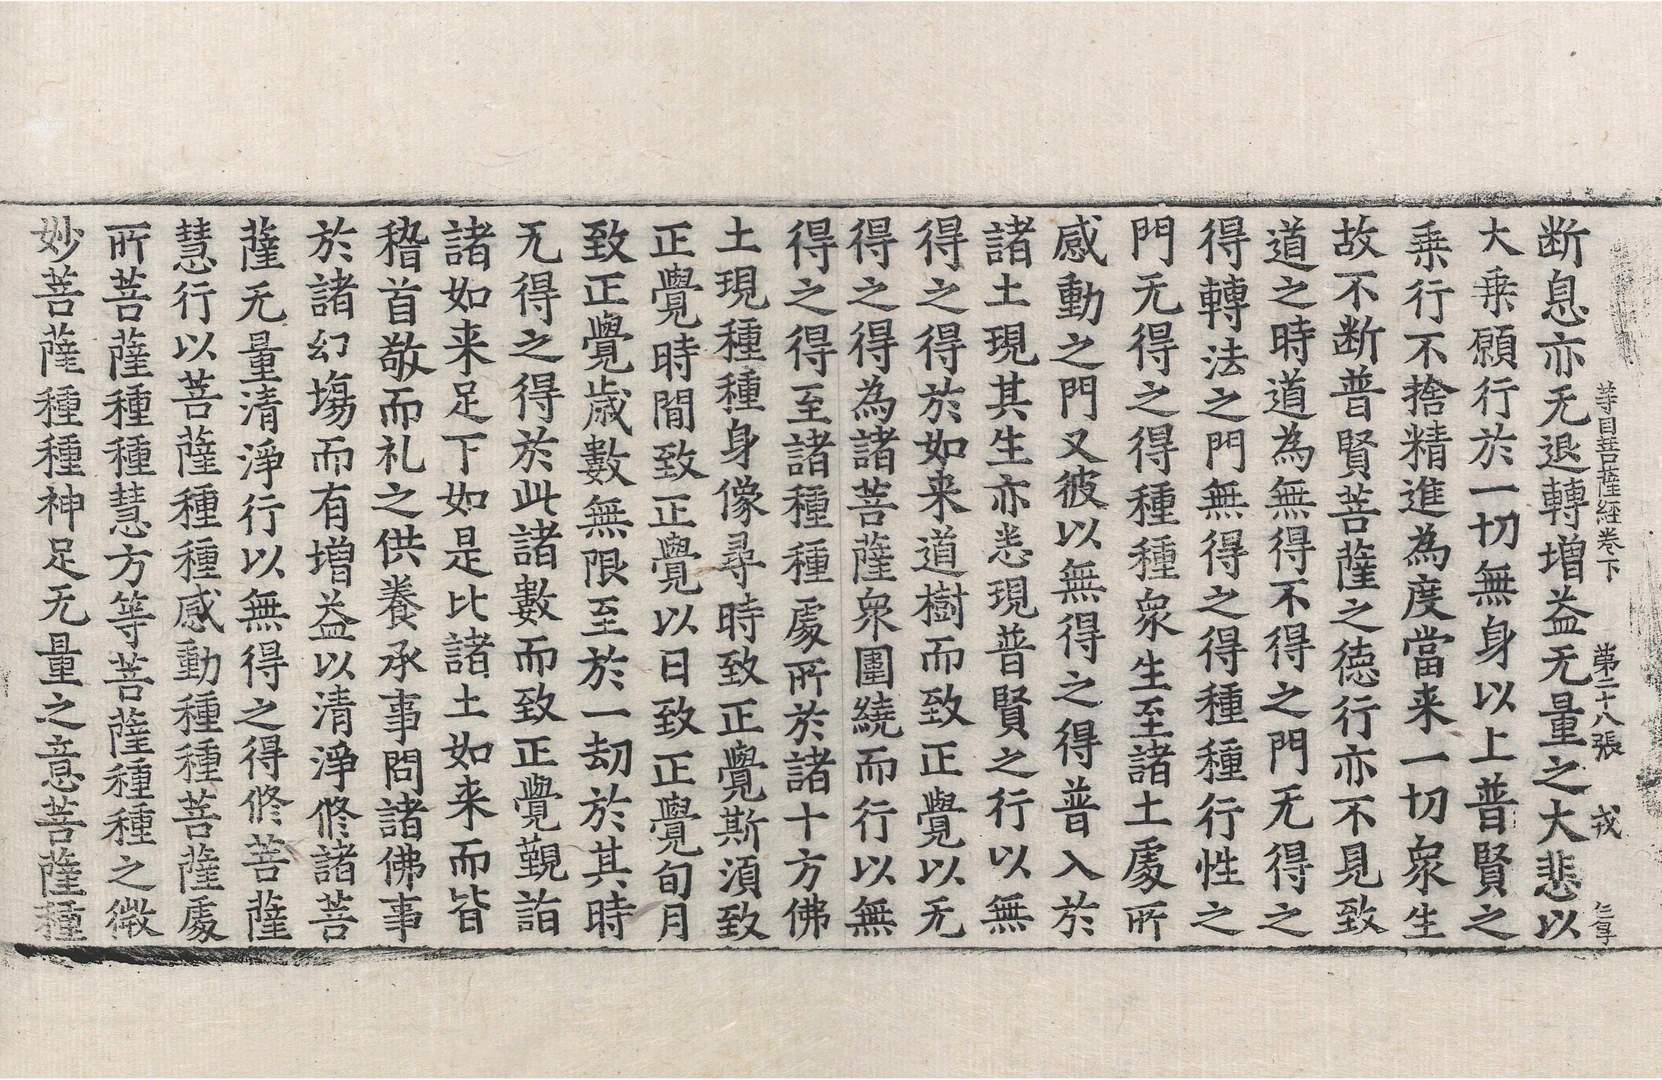 等目菩薩經卷下 第二十八張 戎
断息亦无退轉增益无量之大悲以
大乗願行於一切無身以上普賢之
乗行不捨精進為度當来一切衆生
故不断普賢菩薩之德行亦不見致
道之時道為無得不得之門无得之
得轉法之門無得之得種種行性之
門无得之得種種衆生至諸土處所
感動之門又彼以無得之得普入於
諸土現其生亦悉現普賢之行以無
得之得於如来道樹而致正覺以无
得之得為諸菩薩衆圍繞而行以無
得之得至諸種種處所於諸十方佛
土現種種身像尋時致正覺斯湏致
正覺時間致正覺以日致正覺旬月
致正覺歲數無限至於一劫於其時
无得之得於此諸數而致正覺覲詣
諸如来足下如是比諸土如来而皆
稽首敬而礼之供養承事問諸佛事
於諸幻塲而有增益以清淨修諸菩
薩无量清淨行以無得之得修菩薩
慧行以菩薩種種感動種種菩薩處
所菩薩種種慧方等菩薩種種之微
妙菩薩種種神足无量之意菩薩種